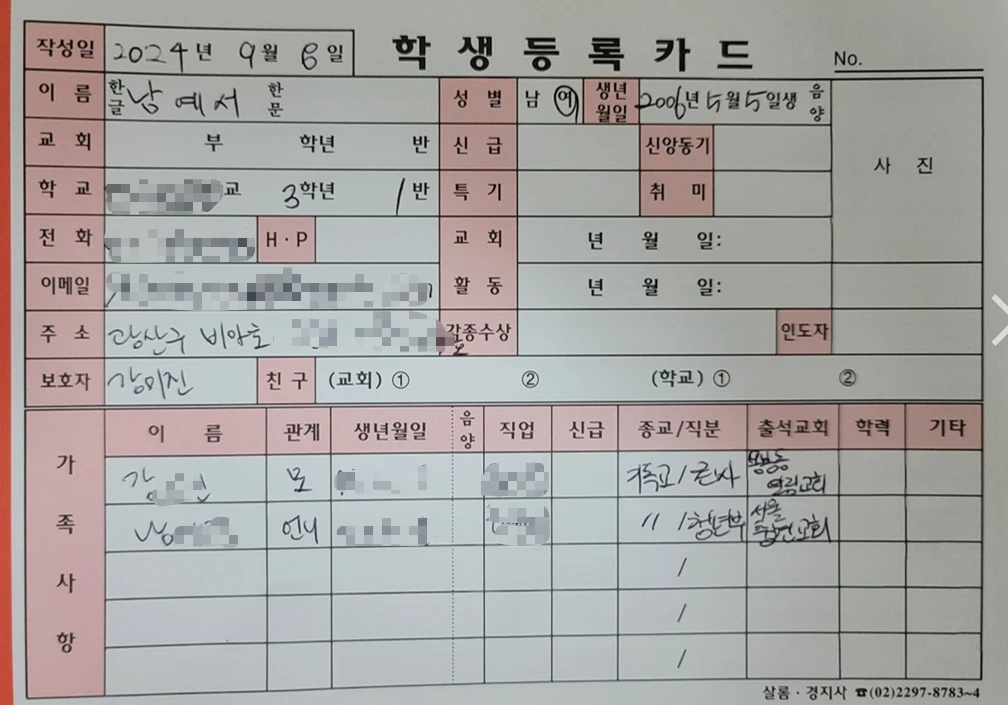 작성일 2024년 9월 6일 학생등록카드 No.
이 름 한글 남예서 한문 성 별 남 여 생년월일 2006년 5월 5일생 음 양
교 회 부 학년 반 신 급 신앙동기 사 진
학 교 교 3학년 1반 특 기 취 미
전 화 H·P 교 회 년 월 일:
이메일 활 동 년 월 일:
주 소 광산구 비아로 각종수상 인도자
보호자 강미진 친 구 (교회) ① ② (학교) ① ②
가족사항 이 름 관계 생년월일 음양 직업 신급 종교/직분 출석교회 학력 기타
강 모 기독교/집사 열림교회
남 언니 〃 /청년부 서울 교회
/
/
/
살롬·경지사 ☎(02)2297-8783~4